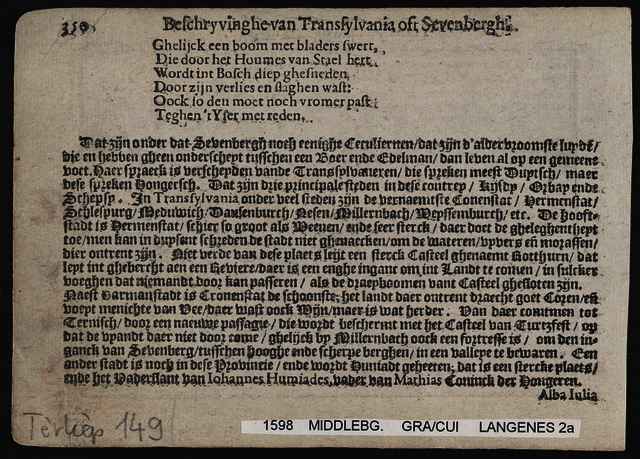 350.
Beschryvinghe van Transsylvania oft Sevenbergh.
Ghelijck een boom met bladers swert,
Die door het Houmes van Stael hert
Wordt int Bosch diep ghesneden,
Door zijn verlies en slaghen wast:
Oock so den moet noch vromer past
Teghen 't Yser met reden.
Dat zijn onder dat Sevenbergh noch eenighe Ceculiernen/dat zijn d'aldervroomste luyde/
die en hebben gheen onderscheyt tusschen een Boer ende Edelman/dan leven al op een gemeene
voet. Haer spraeck is verscheyden vande Transylvaneren/die spreken meest Duytsch/maer
dese spreken Hongersch. Dat zijn drie principale steden in dese contrey/Kysdy/Orbay ende
Schepsy. In Transylvania onder veel steden zijn de vernaemste Conenstat/Hermenstat/
Schlespurg/Meduwich/Dausenburch/Nesen/Millernbach/Weyssemburch/etc. De hooft-
stadt is Hermenstat/schier so groot als Weenen/ende seer sterck/daer doet de gheleghentheyt
toe/men kan in duysent schreden de stadt niet ghenaecken/om de wateren/vyvers en morassen/
dier ontrent zijn. Niet verde van dese plaets leyt een sterck Casteel ghenaemt Rotthurn/dat
leyt int gheberch aen een Reviere/daer is een enghe ingant om int Landt te comen/in sulcker
voeghen dat niemandt door kan passeren/als de draepboomen vant Casteel ghesloten zijn.
Naest Harmanstadt is Cronenstat de schoonste: het landt daer ontrent draecht goet Coren/est
voept menichte van Vee/daer wast oock Wijn/maer is wat herder. Van daer commen tot
Ternisch/door een naeuwe passagie/die wordt beschermt met het Casteel van Turtzfest/op
dat de vyandt daer niet door come/ghelijck by Millernbach oock een fortresse is/om den in-
ganck van Sevenberg/tusschen hooghe ende scherpe berghen/in een valleye te bewaren. Een
ander stadt is noch in dese Provincie/ende wordt Huniadt geheeten: dat is een stercke plaets/
ende het Vaderslant van Iohannes Huniades, vader van Mathias Coninck der Hongeren.
Alba Iulia
149
1598 MIDDLEBG. GRA/CUI LANGENES 2a